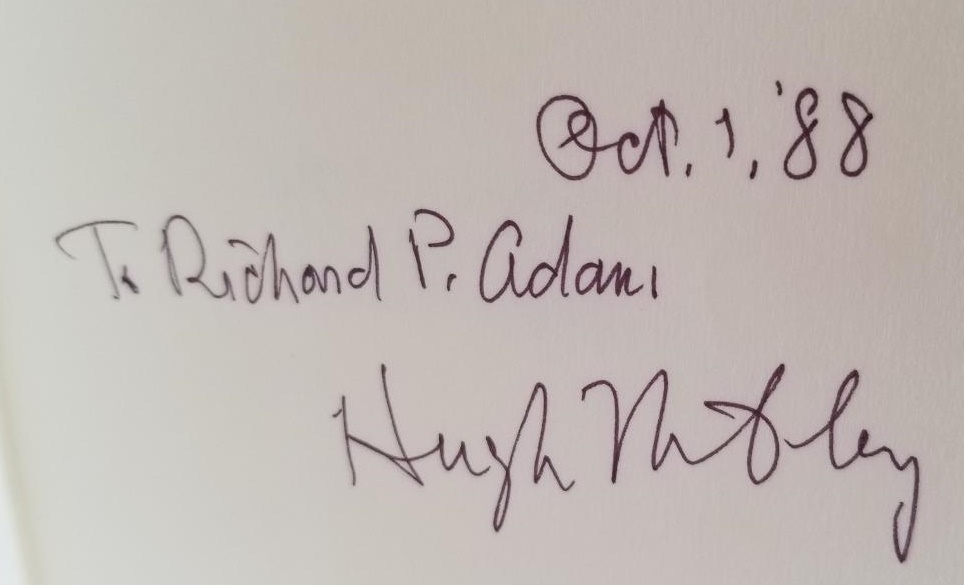 Oct. 1, '88
To Richard P. Adams
Hugh Nibley